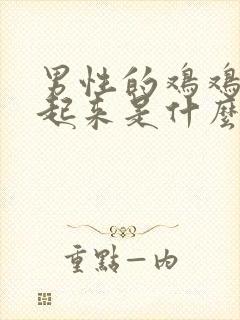 男性的鸡鸡
起来是什麼
重點一内